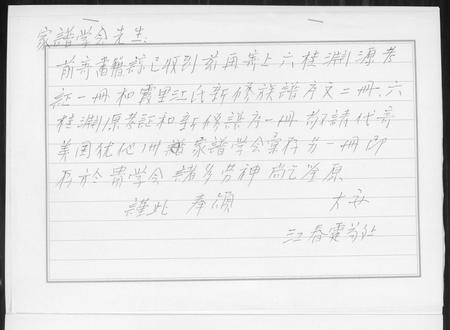 家譜学会先生:
前寄書籍諒已收到茲再寄上六桂淵源考
証一冊和霞里江氏新修族譜序文二冊,六
桂淵源考証和新修譜序一冊,敬請代寄
美国犹他州 家譜学会彙存另一冊即
存於 貴学会 諸多劳神 尚乞鉴原
謹此 奉頌
大安
江春霖